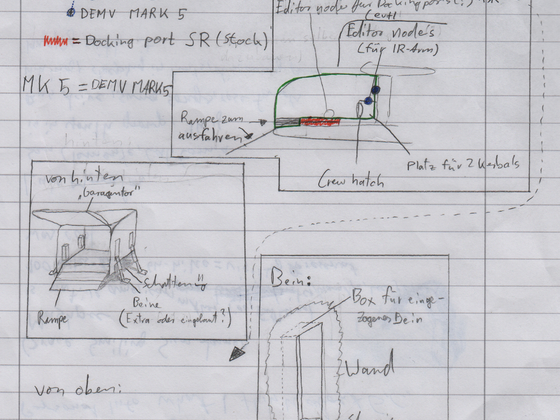 Editor node für Docking port
DEMV MARK 5
(evtl)
= Docking port SR (Stock)
Editor node's
(für IR-Arm)
MK 5 = DEMV MARK5
Rampe zum
ausfahren
Platz für 2 Kerbals
Crew hatch
von hinten
"Garagentor"
Schatten
Beine
(Extra oder eingebaut?)
Rampe
Bein:
Box für einge-
zogenes Bein
Wand
von oben: